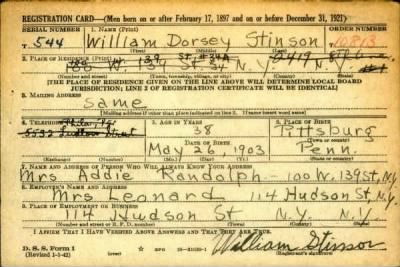 REGISTRATION CARD—(Men born on or after February 17, 1897 and on or before December 31, 1921)
SERIAL NUMBER 1. NAME (Print) ORDER NUMBER
544 William Dorsey Stinson
(First) (Middle) (Last)
2. PLACE OF RESIDENCE (Print)
N.Y. N.Y.
(Number and street) (Town, township, village, or city) (County) (State)
[THE PLACE OF RESIDENCE GIVEN ON THE LINE ABOVE WILL DETERMINE LOCAL BOARD
JURISDICTION; LINE 2 OF REGISTRATION CERTIFICATE WILL BE IDENTICAL]
3. MAILING ADDRESS
same
[Mailing address if other than place indicated on line 2. If same insert word same]
4. TELEPHONE 5. AGE IN YEARS 6. PLACE OF BIRTH
5532 38 Pittsburg
DATE OF BIRTH (Town or county)
May 26 1903 Penn.
(Exchange) (Number) (Mo.) (Day) (Yr.) (State or country)
7. NAME AND ADDRESS OF PERSON WHO WILL ALWAYS KNOW YOUR ADDRESS
Mrs Addie Randolph - 100 W. 139 St, N.Y.
8. EMPLOYER'S NAME AND ADDRESS
Mrs Leonard 114 Hudson St, N.Y.
9. PLACE OF EMPLOYMENT OR BUSINESS
114 Hudson St N.Y. N.Y.
(Number and street or R. F. D. number) (Town) (County) (State)
I AFFIRM THAT I HAVE VERIFIED ABOVE ANSWERS AND THAT THEY ARE TRUE.
D. S. S. Form 1
(Revised 1-1-42) (over) GPO
William Stinson
(Registrant's signature)